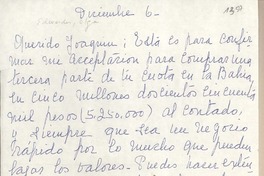 Diciembre 6-
139
Querido Joaquín: Esta es para confir
mar mi aceptación para comprar una
tercera parte de tu cuota en la Bahía,
en cinco millones doscientos cincuenta
mil pesos (5.250.000) al contado;
y siempre que sea un negocio
rápido por lo mucho que pueden
bajar los valores. Puedes hacer